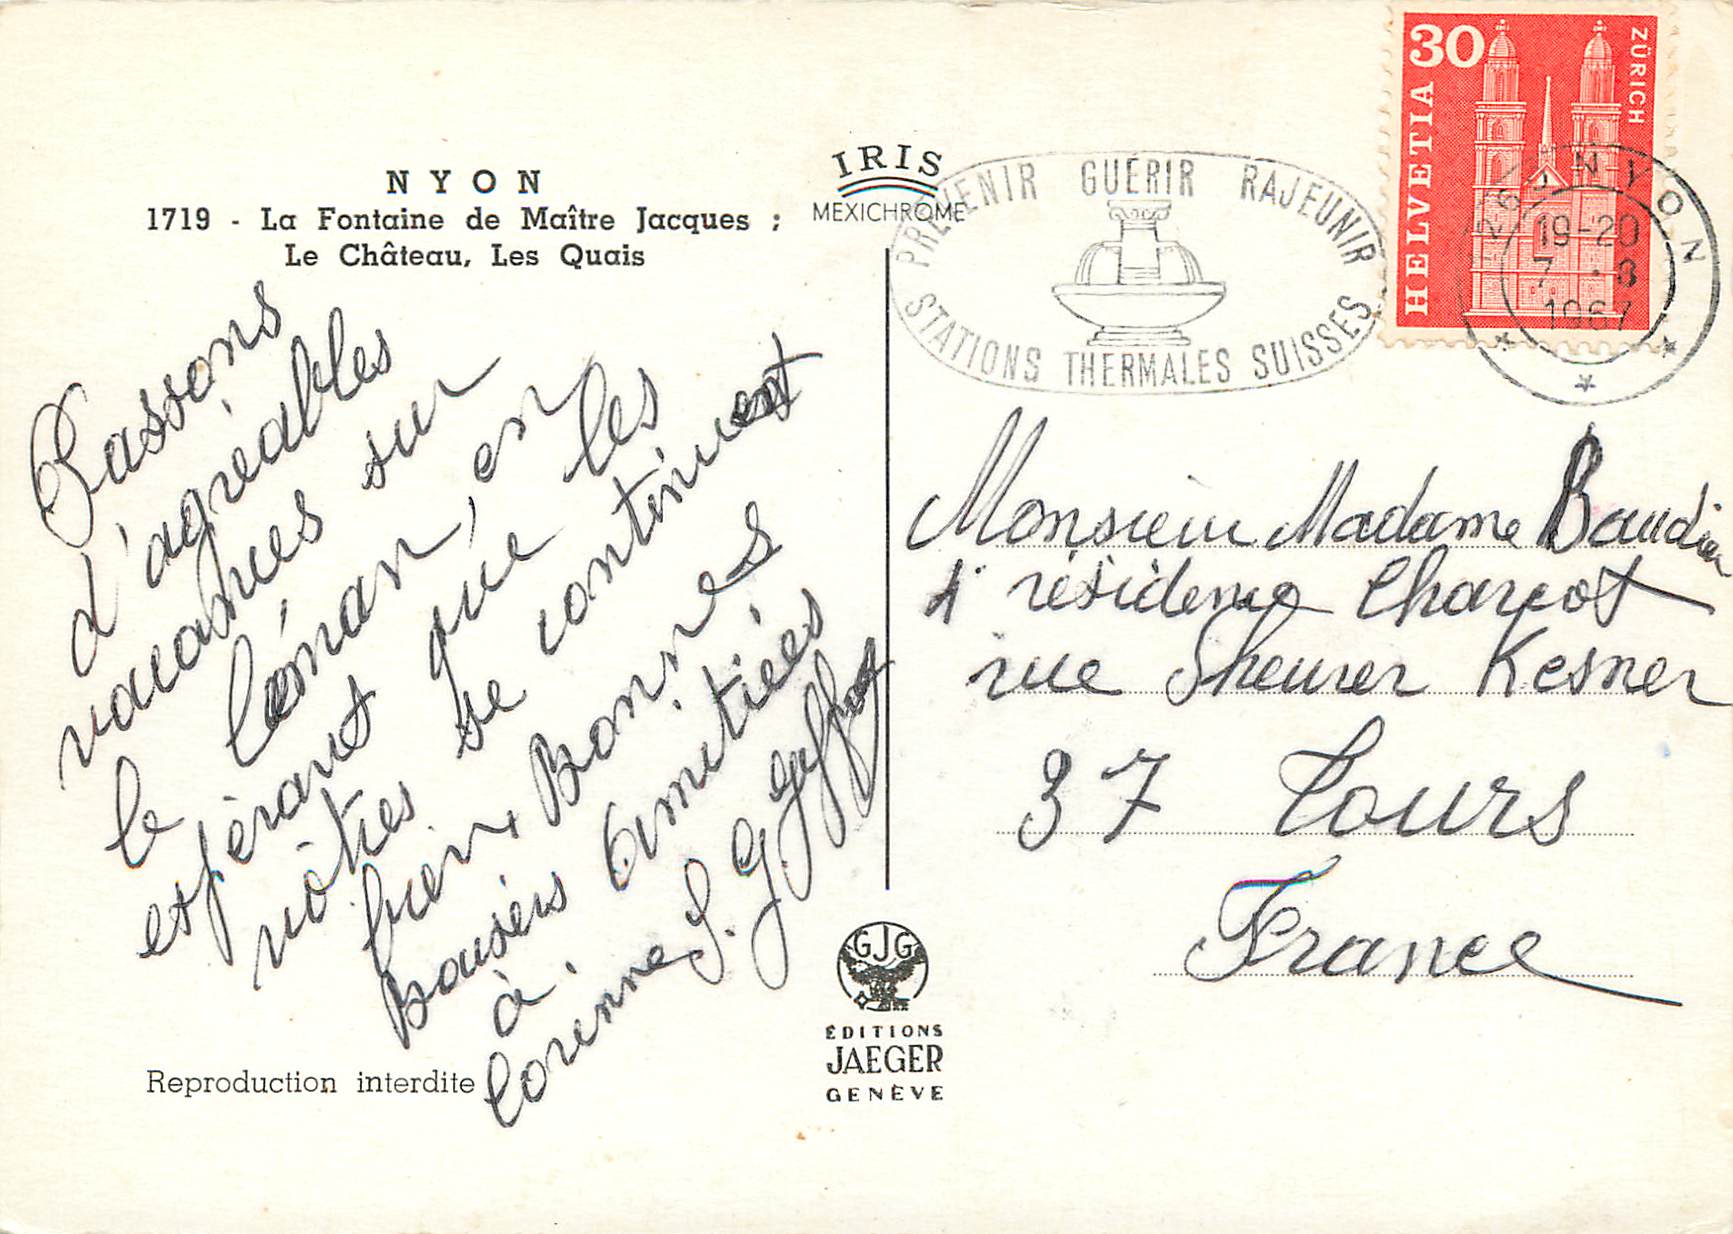 NYON
1719 - La Fontaine de Maître Jacques ;
Le Château, Les Quais
IRIS
MEXICHROME
PREVENIR GUÉRIR RAJEUNIR
STATIONS THERMALES SUISSES
30
HELVETIA
ZÜRICH
1260 NYON
19-20
7.-8
1967
Passons
d'agréables
vacances sur
le léman, en
espérant que les
vôtres se continuent
bien, Bonnes
Baisers Amitiées
à
Corinne S. G.
Monsieur Madame Baudin
4 résidence Charcot
rue Sheurer Kesner
37 Tours
France
GJG
ÉDITIONS
JAEGER
GENÈVE
Reproduction interdite